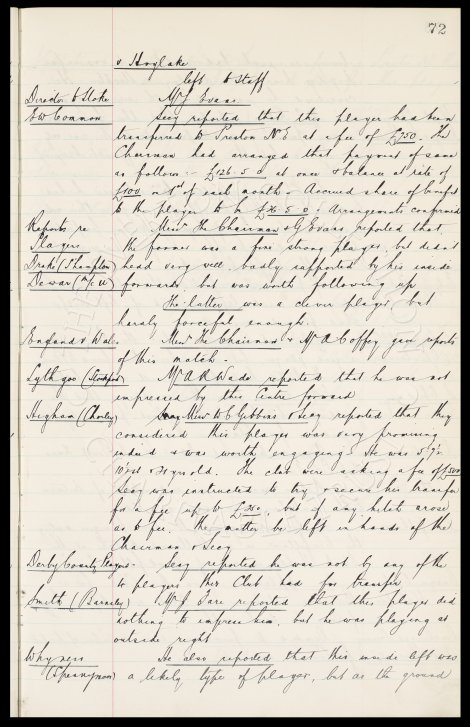 72
v Hoylake
left to staff
Director to Stoke
Mr J Evans
E W Common
Secy reported that this player had been
transferred to Preston N.E at a fee of £750. The
Chairman had arranged that payment of same
as follows:- £126.5.0 at once & balance at rate of
£100 on 1st of each month. Accrued share of benefit
to the player to be £26.5.0. Arrangements confirmed
Reports re
Messrs The Chairman & G Evans reported that
Players
the former was a fine strong player, but didn't
Drake (S'hampton)
head very well, badly supported by his inside
Dewar (M/c U)
forwards, but was worth following up
The latter was a clever player but
hardly forceful enough.
England v Wal.
Messrs The Chairman & Mr A Coffey gave reports
of this match.
Lythgoe (Stockport)
Mr A R Wade reported that he was not
impressed by this Centre forward
Higham (Chorley)
Messrs W C Gibbins & Secy reported that they
considered this player was very promising
indeed & was worth engaging. He was 5'9½
10st & yrs old. The club were asking a fee of £500
Secy was instructed to try & secure his transfer
for a fee up to £250, but if any hitch arose
as to fee, the matter be left in hands of the
Chairman & Secy
Derby County Players.
Secy reported he was not by any of the
to players this Club had for transfer
Smith (Barnsley)
Mr J Fare reported that this player did
nothing to impress him, but he was playing at
outside right
Whyness
He also reported that this inside left was
(Spennymoor)
a likely type of player, but as the ground